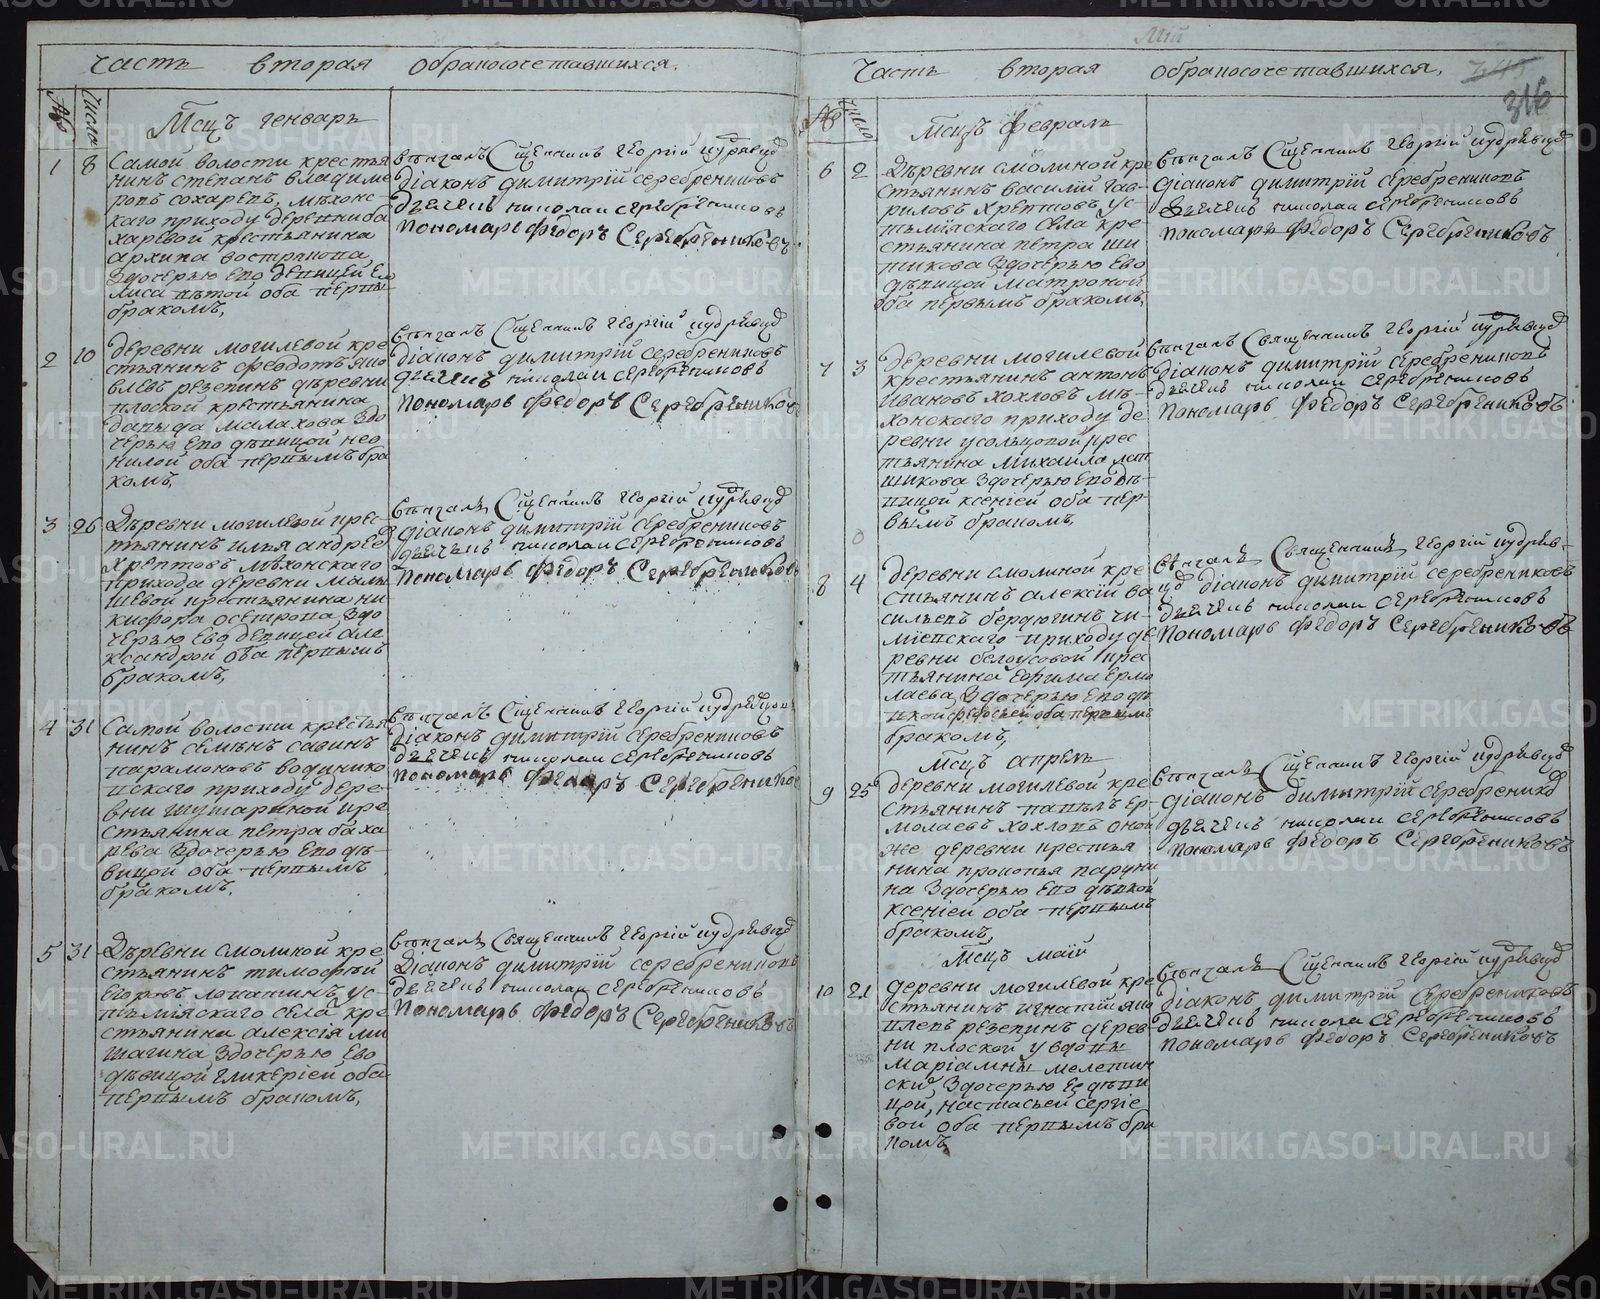 часть вторая обраносочетавшихся.
№ Число
Мсцъ генварь
1 8 Самой волости крестья
нинъ степанъ владиме
ровъ сохаревъ, мѣхонс-
каго приходу деревни ба
харевой крестьянина
архипа вострапова
здочерью ево девицей Ев
бракомъ,
вѣнчалъ Сщенникъ Георгiй
дiаконъ димитрiй серебрениковъ
дьячекъ николаи серебрениковъ
пономарь Федоръ Серебрениковъ
2 10 деревни могилевой кре
стьянинъ федотъ яко
влевъ резепинъ деревни
плоской крестьянина
давыда малахова здо
черью ево дѣвицой нео
нилой оба первымъ бра
комъ,
вѣнчалъ Сщенникъ Георгiй
дiаконъ димитрiй серебрениковъ
дьячекъ николаи серебрениковъ
пономарь Федоръ Серебрениковъ
3 26 Деревни могилевой крес-
тьянинъ илья андрее
Хрептовъ мѣхонскаго
прихода деревни мал
шевой крестьянина ни
кифора осетрова здо
черью ево девицей але
ксандрой оба первымъ
бракомъ,
вѣнчалъ Сщенникъ Георгiй
дiаконъ димитрiй серебрениковъ
дьячекъ николаи серебрениковъ
пономарь Федоръ Серебрениковъ
4 31 Самой волости крестья
нинъ семѣнъ савинъ
парамоновъ водянико
вскаго приходу дере-
вни шушариной кре
стьянина петра баха
рева здочерью ево дѣ-
вицой оба первымъ
бракомъ,
вѣнчалъ Сщенникъ Георгiй
дiаконъ димитрiй серебрениковъ
дьячекъ николаи серебрениковъ
пономарь Федоръ Серебрениковъ
5 31 Дѣревни смолиной кре
стьянинъ тимофѣй
егоровъ лопатинъ, ус-
тьмiяскаго села кре
стьянина алексiя ми
шагина здочерью ево
дѣвицой гликерiей оба
первымъ бракомъ,
вѣнчалъ Священникъ Георгiй
дiаконъ димитрiй серебрениковъ
дьячекъ николаи серебрениковъ
пономарь Федоръ Серебрениковъ
Часть вторая обраносочетавшихся.
345
316
№ число
Мсцъ февраль
6 2 Дѣревни смолиной кре
стьянинъ василiй гав-
риловъ Хрептовъ, ус-
тьмiяскаго села кре-
стьянина петра ши
пикова здочерью ево
дѣвицой матроной
оба первымъ бракомъ,
вѣнчалъ Сщенникъ Георгiй
дiаконъ димитрiй серебрениковъ
дьячекъ николаи серебрениковъ
пономарь Федоръ Серебрениковъ
7 3 деревни могилевой
крестьянинъ антонъ
ивановъ хохловъ мѣ-
хонскаго приходу де
ревни усольцовой крес
тьянина михаила лот
шикова здочерью ево дѣ-
вицой ксенiей оба пер
вымъ бракомъ,
вѣнчалъ Священникъ Георгiй
дiаконъ димитрiй серебрениковъ
дьячекъ николаи серебрениковъ
пономарь Федоръ Серебрениковъ
8 4 деревни смолиной кре
стьянинъ алексiй ва
сильевъ бердюгинъ чи-
мiевскаго приходу де
ревни белоусовой крес
тьянина ефрима ермо
лаева здочерью ево дѣ
вкой федосьей оба первымъ
бракомъ,
вѣнчалъ Священникъ Георгiй
дiаконъ димитрiй серебрениковъ
дьячекъ николаи серебрениковъ
пономарь Федоръ Серебрениковъ
Мсцъ апрель
9 25 деревни могилевой кре
стьянинъ павѣлъ ер-
молаевъ хохловъ оной
же деревни крестья
нина прокопья паруни
на здочерью ево дѣвкой
ксенiей оба первымъ
бракомъ,
вѣнчалъ Сщенникъ Георгiй
дiаконъ димитрiй серебрениковъ
дьячекъ николаи серебрениковъ
пономарь Федоръ Серебрениковъ
Мсцъ маiй
10 21 деревни могилевой кре
стьянинъ игнатiй яко
влевъ резепинъ дерев
ни плоской у вдовы
марiамны мелетин
ской здочерью ее дѣви
цой, настасьей сергiе
вой оба первымъ бра
комъ,
вѣнчалъ Сщенникъ Георгiй
дiаконъ димитрiй серебрениковъ
дьячекъ николаи серебрениковъ
пономарь Федоръ Серебрениковъ
METRIKI.GASO-URAL.RU